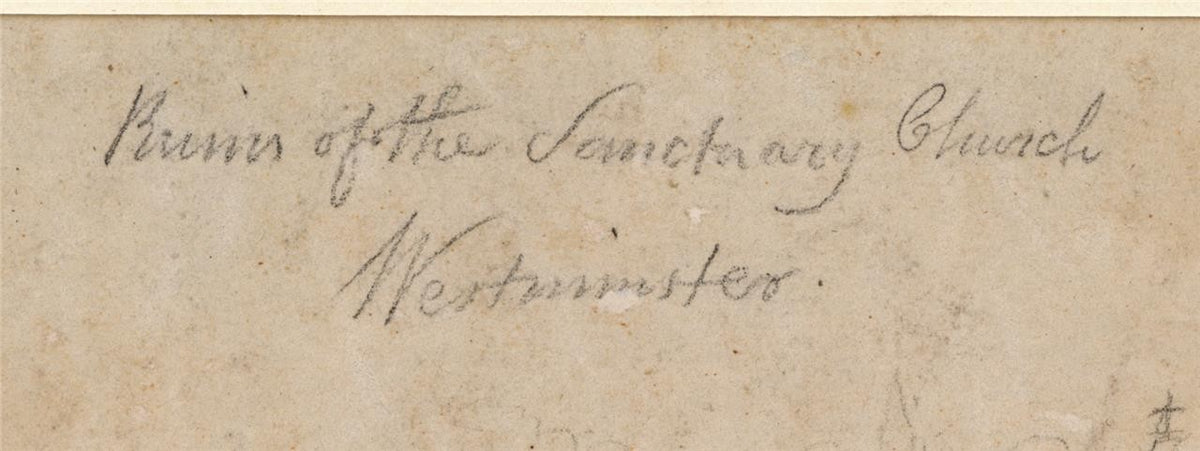 Ruins of the Sanctuary Church
Westminster.